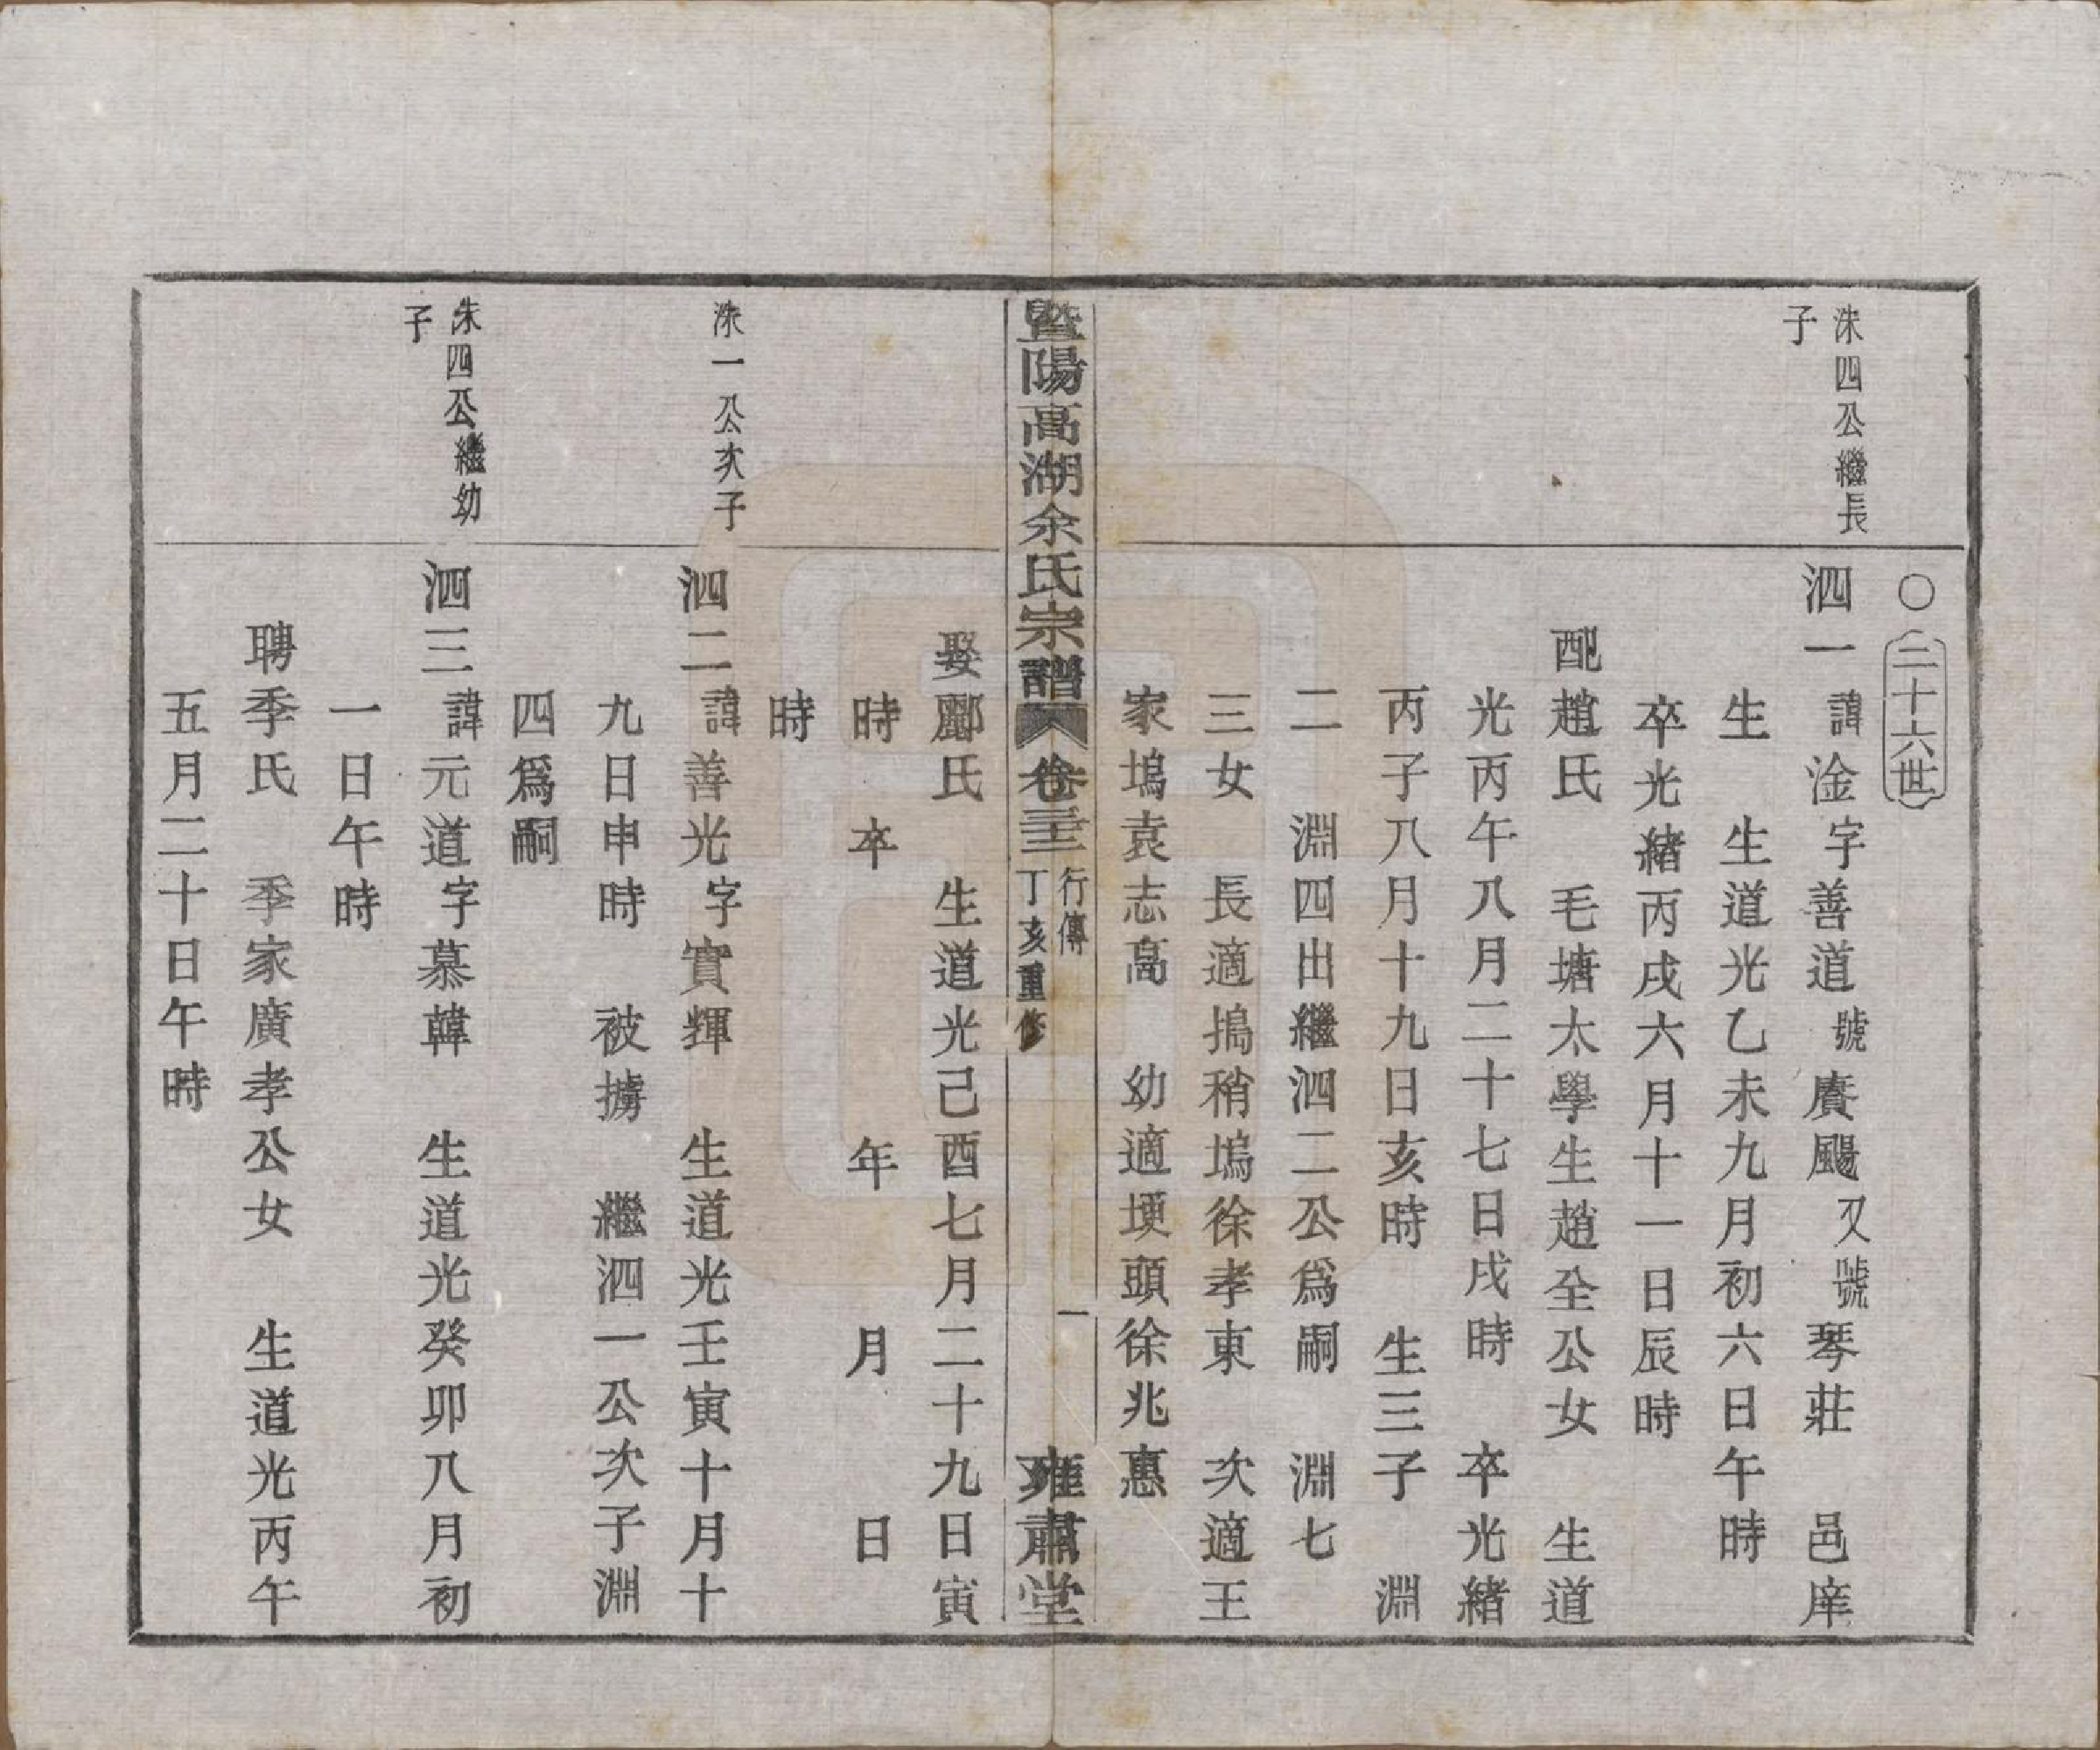 ○二十六世
洙四公繼長
子
泗一諱淦字善道號賡颺又號琴莊 邑庠
生 生道光乙未九月初六日午時
卒光緒丙戌六月十一日辰時
配趙氏 毛塘太學生趙全公女 生道
光丙午八月二十七日戌時 卒光緒
丙子八月十九日亥時 生三子 淵
二 淵四出繼泗二公爲嗣 淵七
三女 長適搗稍塢徐孝東 次適王
家塢袁志高 幼適埂頭徐兆惠
暨陽高湖余氏宗譜 卷三十三 行傳 丁亥重修 一 雍肅堂
娶酈氏 生道光己酉七月二十九日寅
時 卒 年 月 日
時
洙一公次子
泗二諱善光字實輝 生道光壬寅十月十
九日申時 被擄 繼泗一公次子淵
四爲嗣
洙四公繼幼
子
泗三諱元道字慕韓 生道光癸卯八月初
一日午時
聘季氏 季家廣孝公女 生道光丙午
五月二十日午時